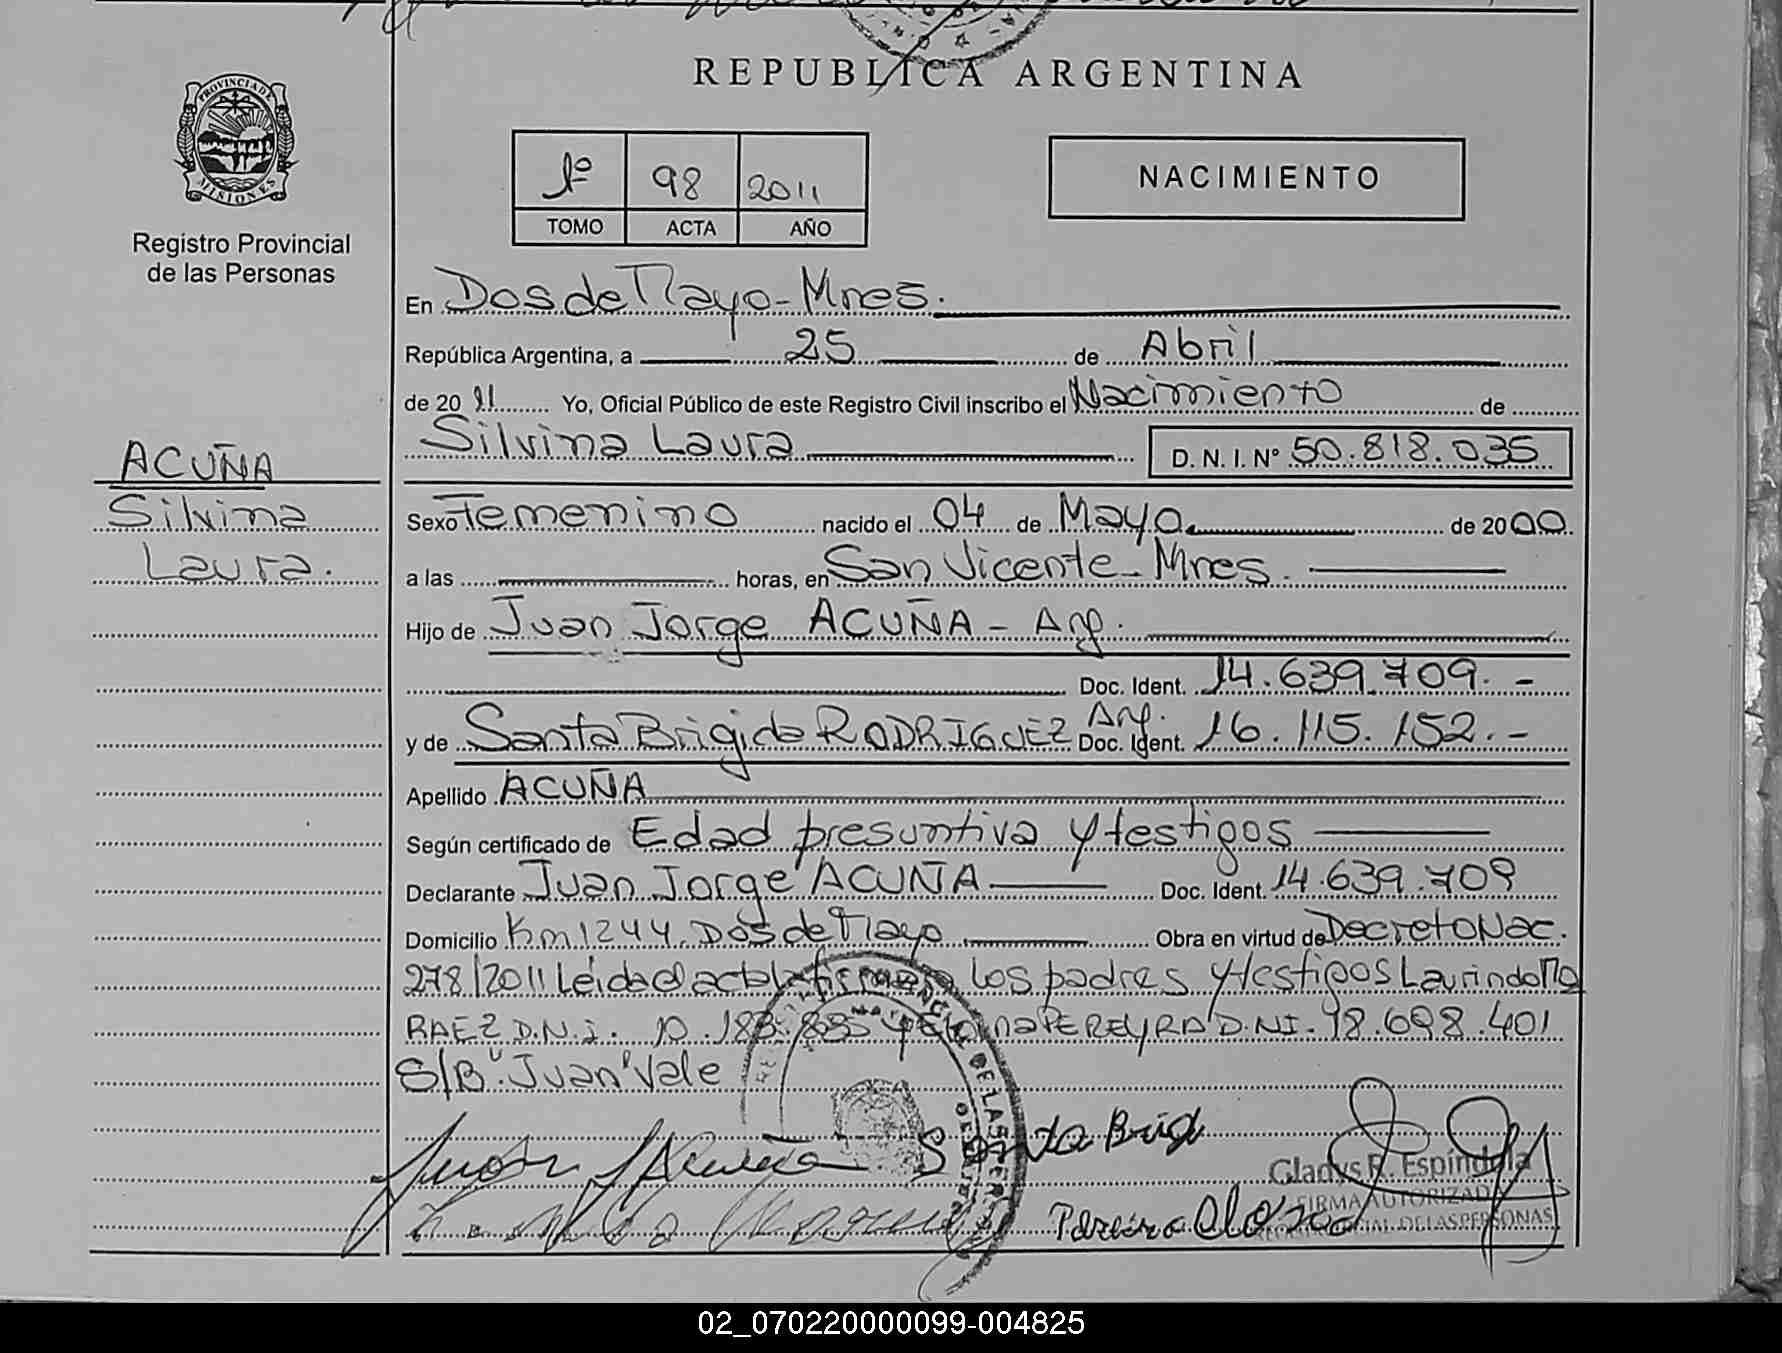 REPUBLICA ARGENTINA
PROVINCIA DE MISIONES
Registro Provincial
de las Personas
1º 98 2011
TOMO ACTA AÑO
NACIMIENTO
En Dos de Mayo - Mnes.
República Argentina, a 25 de Abril
de 2011 Yo, Oficial Público de este Registro Civil inscribo el Nacimiento de
Silvina Laura D. N. I. Nº 50.818.035
ACUÑA
Silvina
Laura.
Sexo Femenino nacido el 04 de Mayo de 2000
a las horas, en San Vicente - Mnes.
Hijo de Juan Jorge ACUÑA - Arg.
Doc. Ident. 14.639.709. -
y de Santa Brigida RODRIGUEZ Arg. Doc. Ident. 16.115.152. -
Apellido ACUÑA
Según certificado de Edad presuntiva y testigos
Declarante Juan Jorge ACUÑA Doc. Ident. 14.639.709
Domicilio Km 1244. Dos de Mayo Obra en virtud de Decreto Nac.
278/2011 Leida el acta la firman los padres y testigos Laurindo
RAEZ D.N.i. 10.183.835 y PEREYRA D.NI. 98.698.401
S/B "Juan" Vale
Juan J Acuña Santa Brigi
Gladys R. Espíndola
FIRMA AUTORIZADA
DE LAS PERSONAS
Pereira
02_070220000099-004825